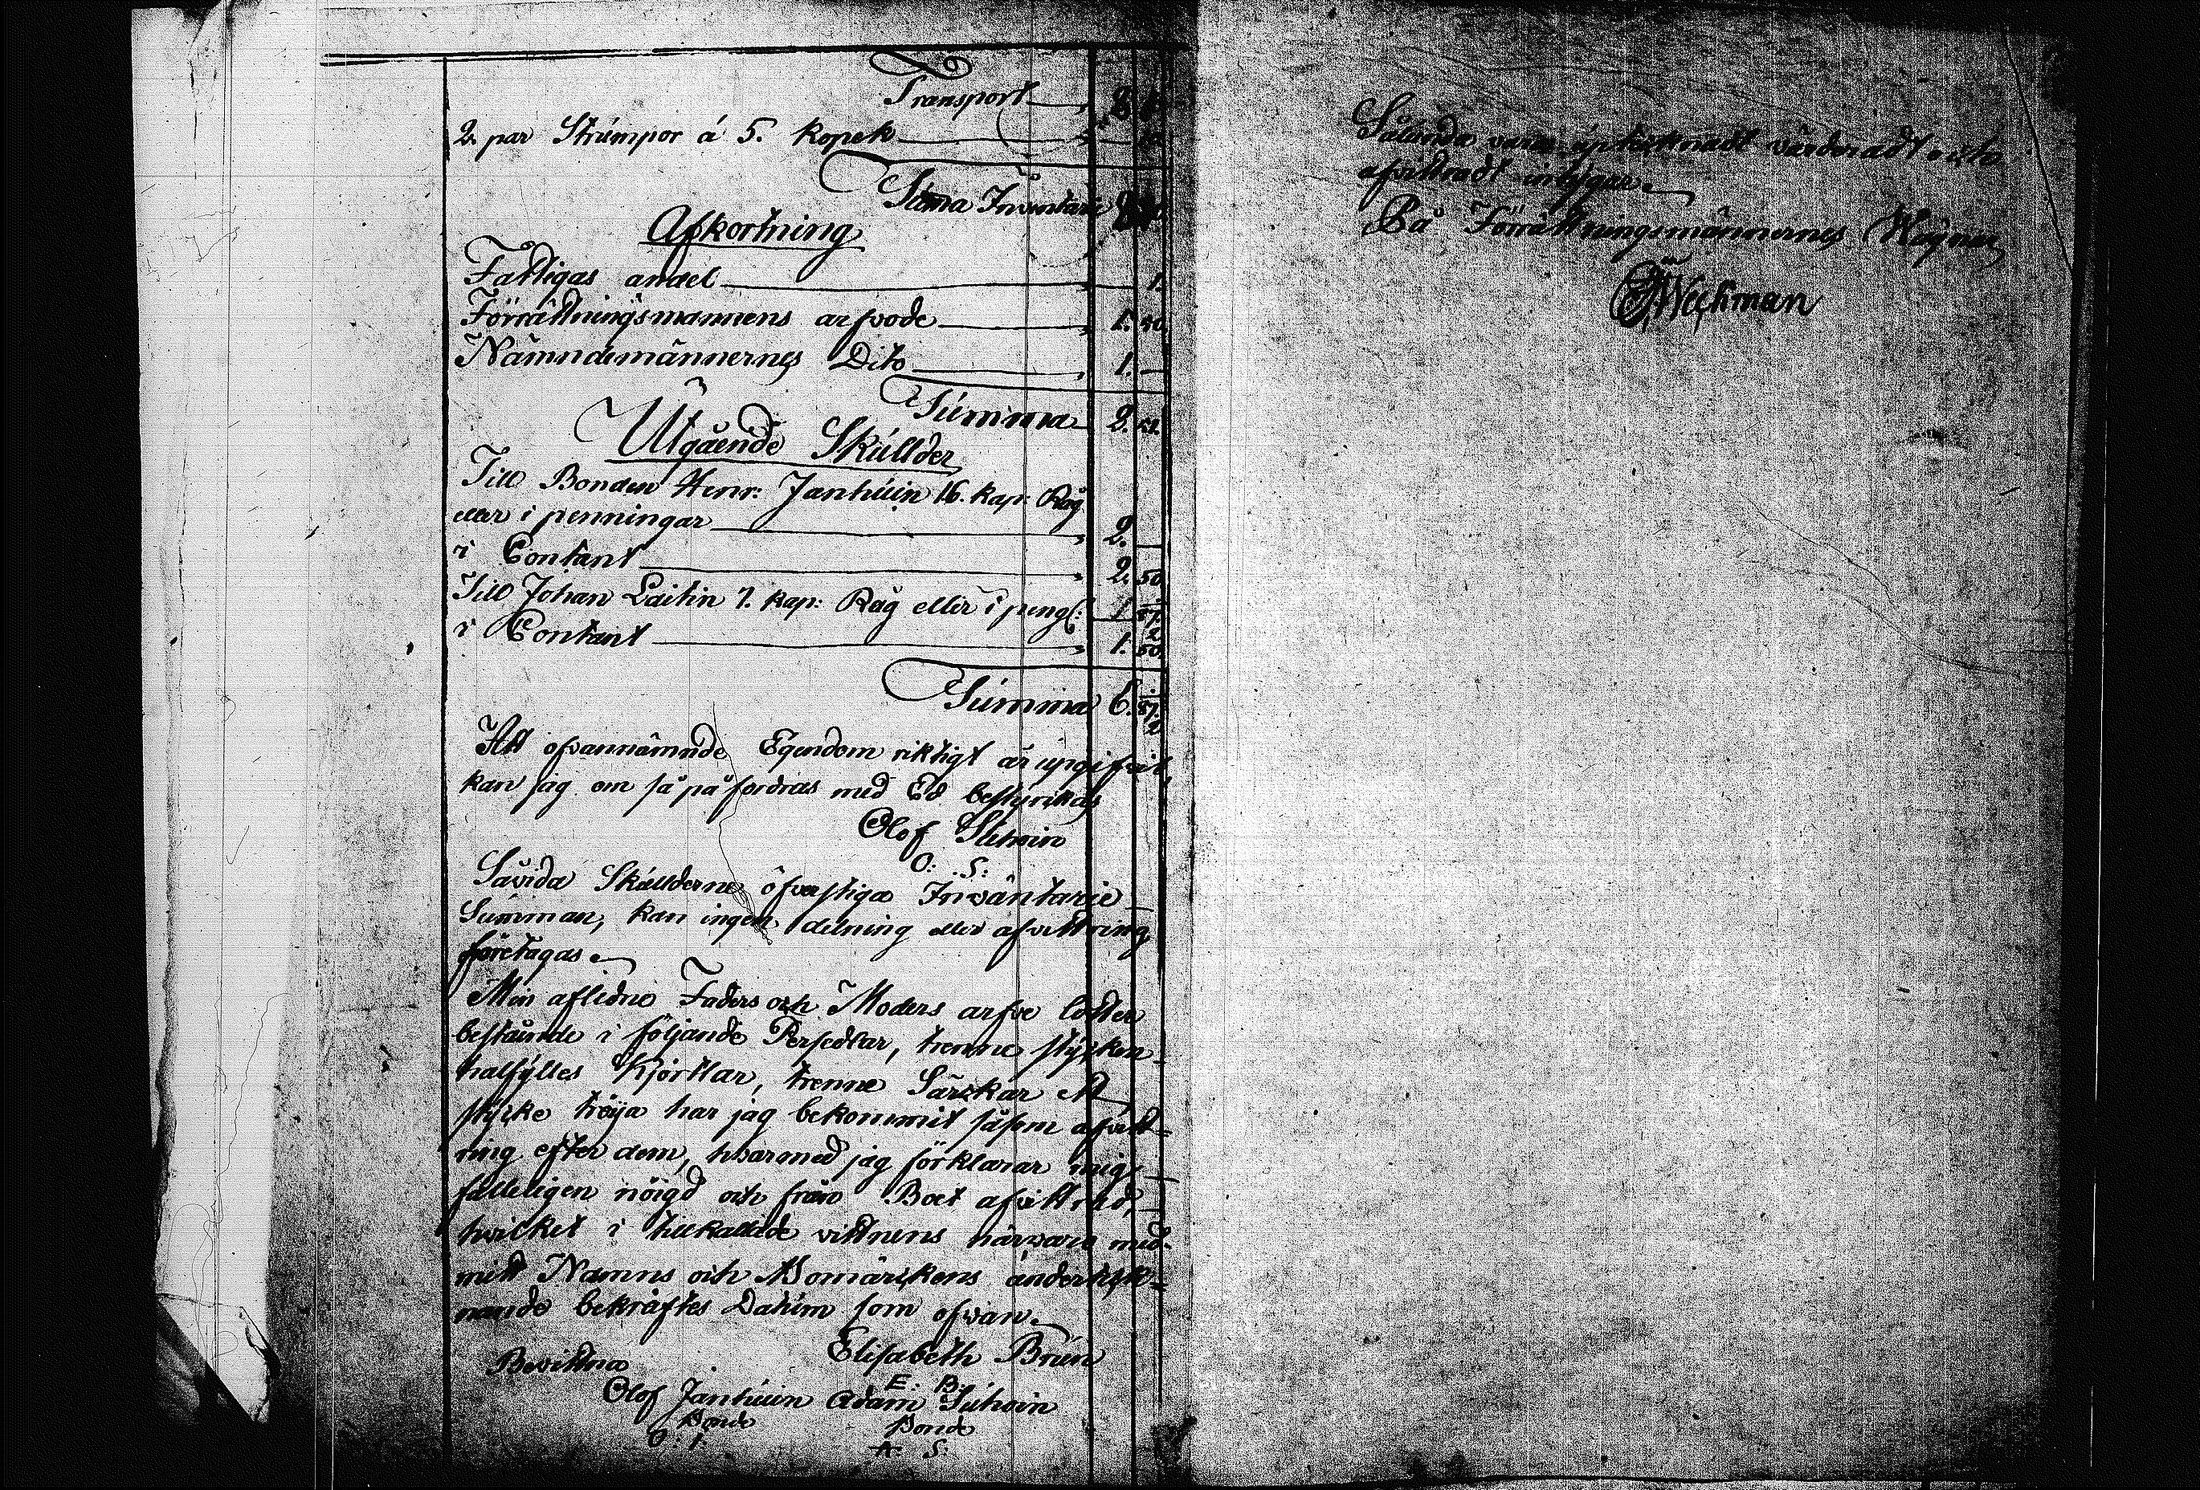 Transport
2. par Strümpor á 5. kopek 10
Sũma Inventarie
Afkortning
Fattigas andel 1.
Förrättningsmannens arfvode 1.
Nämndemännernes Dito 1.
Summa 2. 51.
Utgående Skúllder
Till Bonden Henr: Janhúin 16. kap: Råg
eller i penningar 2.
i Contant 2. 50
Till Johan Laitin 7. kap: Råg eller i peng: 1
i Contant 1. 50.
Súmma 6.
Att ofvannämnde Egendom riktigt är upgifvit,
kan jag om så påfordras med Ed bestyrkas
Olof
O: S:
Såvida Skúllderne öfverstiga Inväntarie
Súmman, kan ingen delning eller afvittring
företagas.
Min aflidne Faders och Moders arfve lotter
bestående i följande Persedlar, trenne stycken
halfylles Kjortlar, trenne Särckar ett
stycke tröya har jag bekommit såsom afvitt=
ring efter dem, hvarmed jag förklarar mig
fulleligen nöigd och från Boet afvittrad,
hvilket i tillkallade vittnens närvaro med
mitt Namns och Bomärckens underteck=
nande bekräftes Datúm som ofvan.
Elisabeth Brún
E: B:
Bevittna
Olof Janhúin Adam Súhoin
Bonde Bonde
O: I: A: S:
Sålunda vara úptecknadt värderadt
afvittradt intygar.
På Förrättningsmännernes Wägnar
Weckman